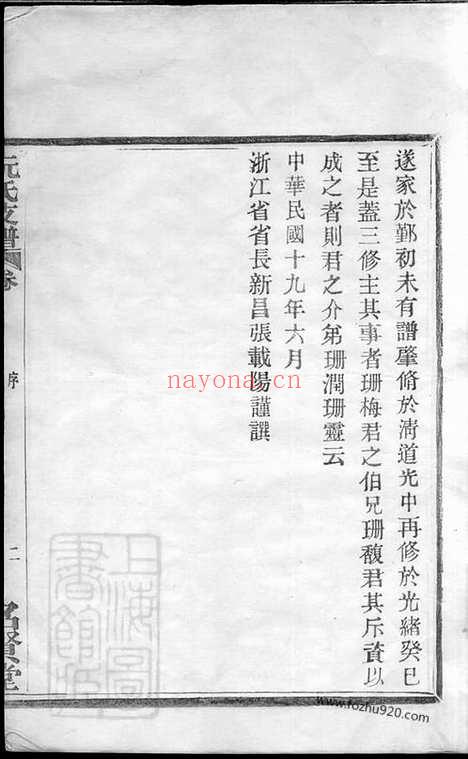 遂家於鄞初未有譜肇脩於清道光中再修於光緒癸巳
至是蓋三修主其事者珊梅君之伯兄珊馥君其斥資以
成之者則君之介弟珊潤珊靈云
中華民國十九年六月
浙江省省長新昌張載陽謹譔
阮氏支譜
卷
序
二
名賢堂
上海圖書館藏
nayona.cn
www.fozhu920.com